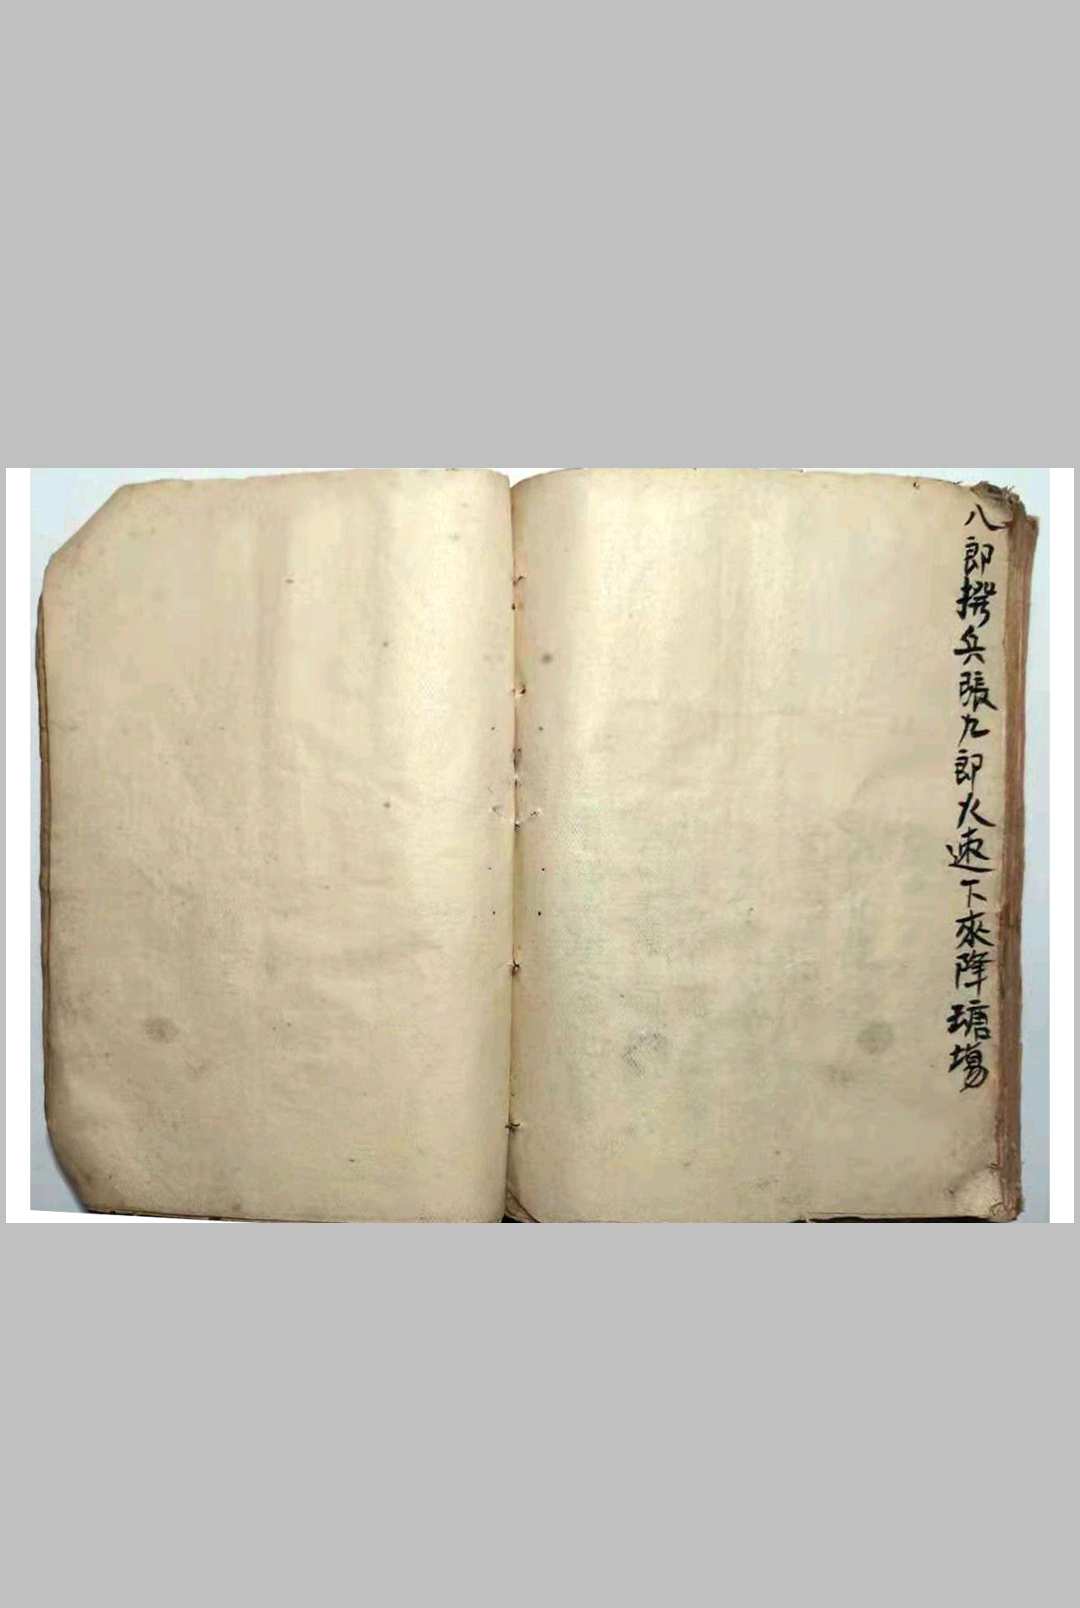 八郎撥兵張九郎火速下來降瑭場